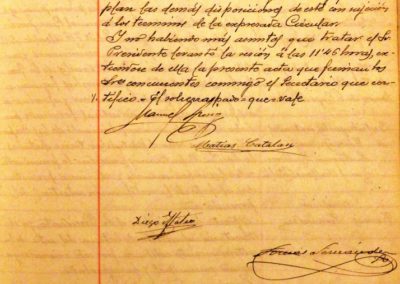 plan las demás disposiciones de esta con sujeción
á los terminos de la expresada Circular.
Y no habiendo más asuntos que tratar el Sr.
Presidente levantó la sesión á las 11'45 horas, ex-
de ella la presente acta que firman los
Sres concurrentes conmigo el Secretario que cer-
tifico. = El sobrerraspado = que = vale
Manuel
Matias Catalan
Diego
Tomas